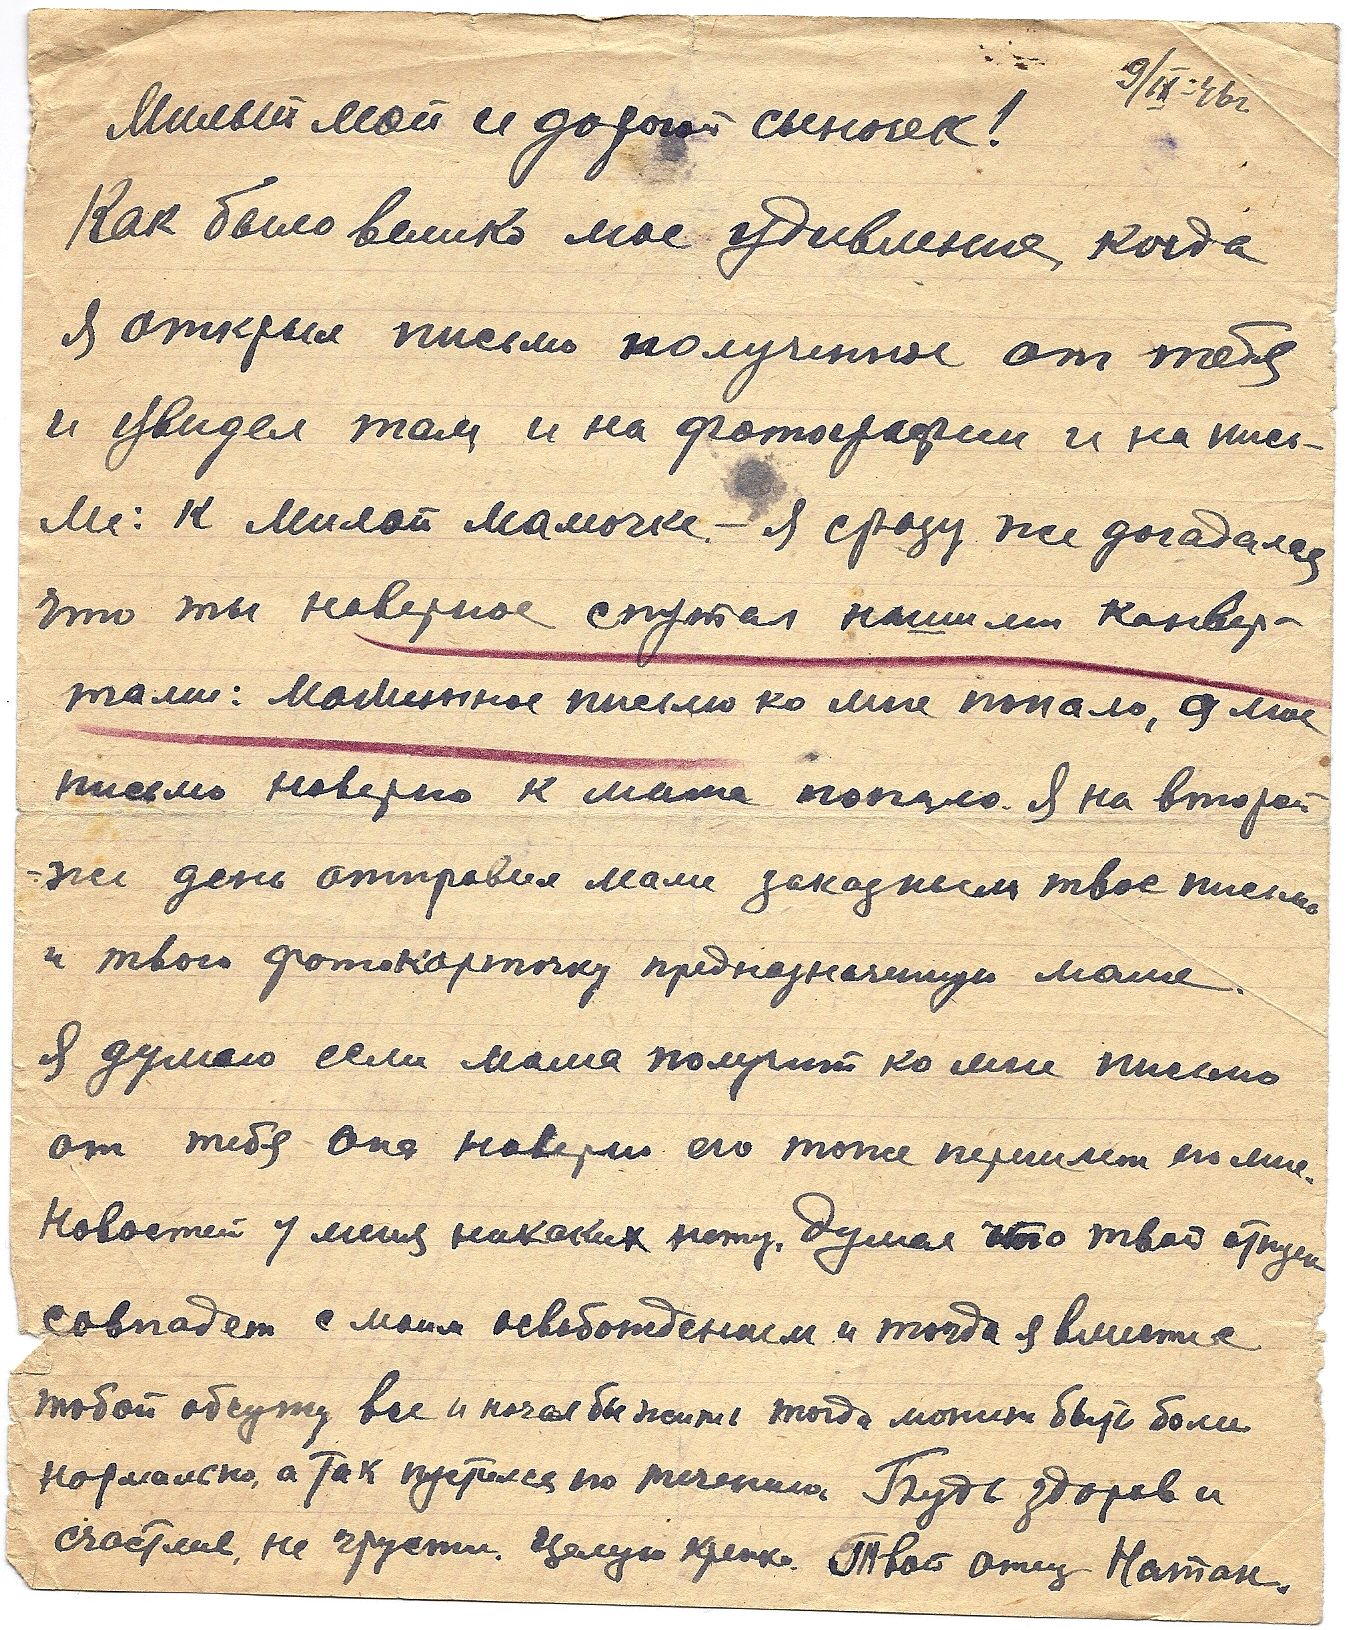 9/IX-46г
Милый мой и дорогой сыночек!
Как было велико мое удивление, когда
я открыл письмо полученное от тебя
и увидел там и на фотографии и на пись-
ме: к милой мамочке – я сразу же догадался
что ты наверное спутал нашими конвер-
тами: мамино письмо ко мне попало, а мое
письмо наверно к маме попало. Я на второй
-же день отправил маме заказным твое письмо
и твою фотокарточку предназначенную маме.
Я думаю если мама получит ко мне письмо
от тебя она наверно его тоже перешлет ко мне.
Новостей у меня никаких нету. Думал что твой отпуск
совпадет с моим освобождением и тогда я вместе с
тобой обсужу все и начал бы жить тогда может быть более
нормально, а так пустился по течению. Будь здоров и
счастлив, не грусти. Целую крепко. Твой отец Натан.